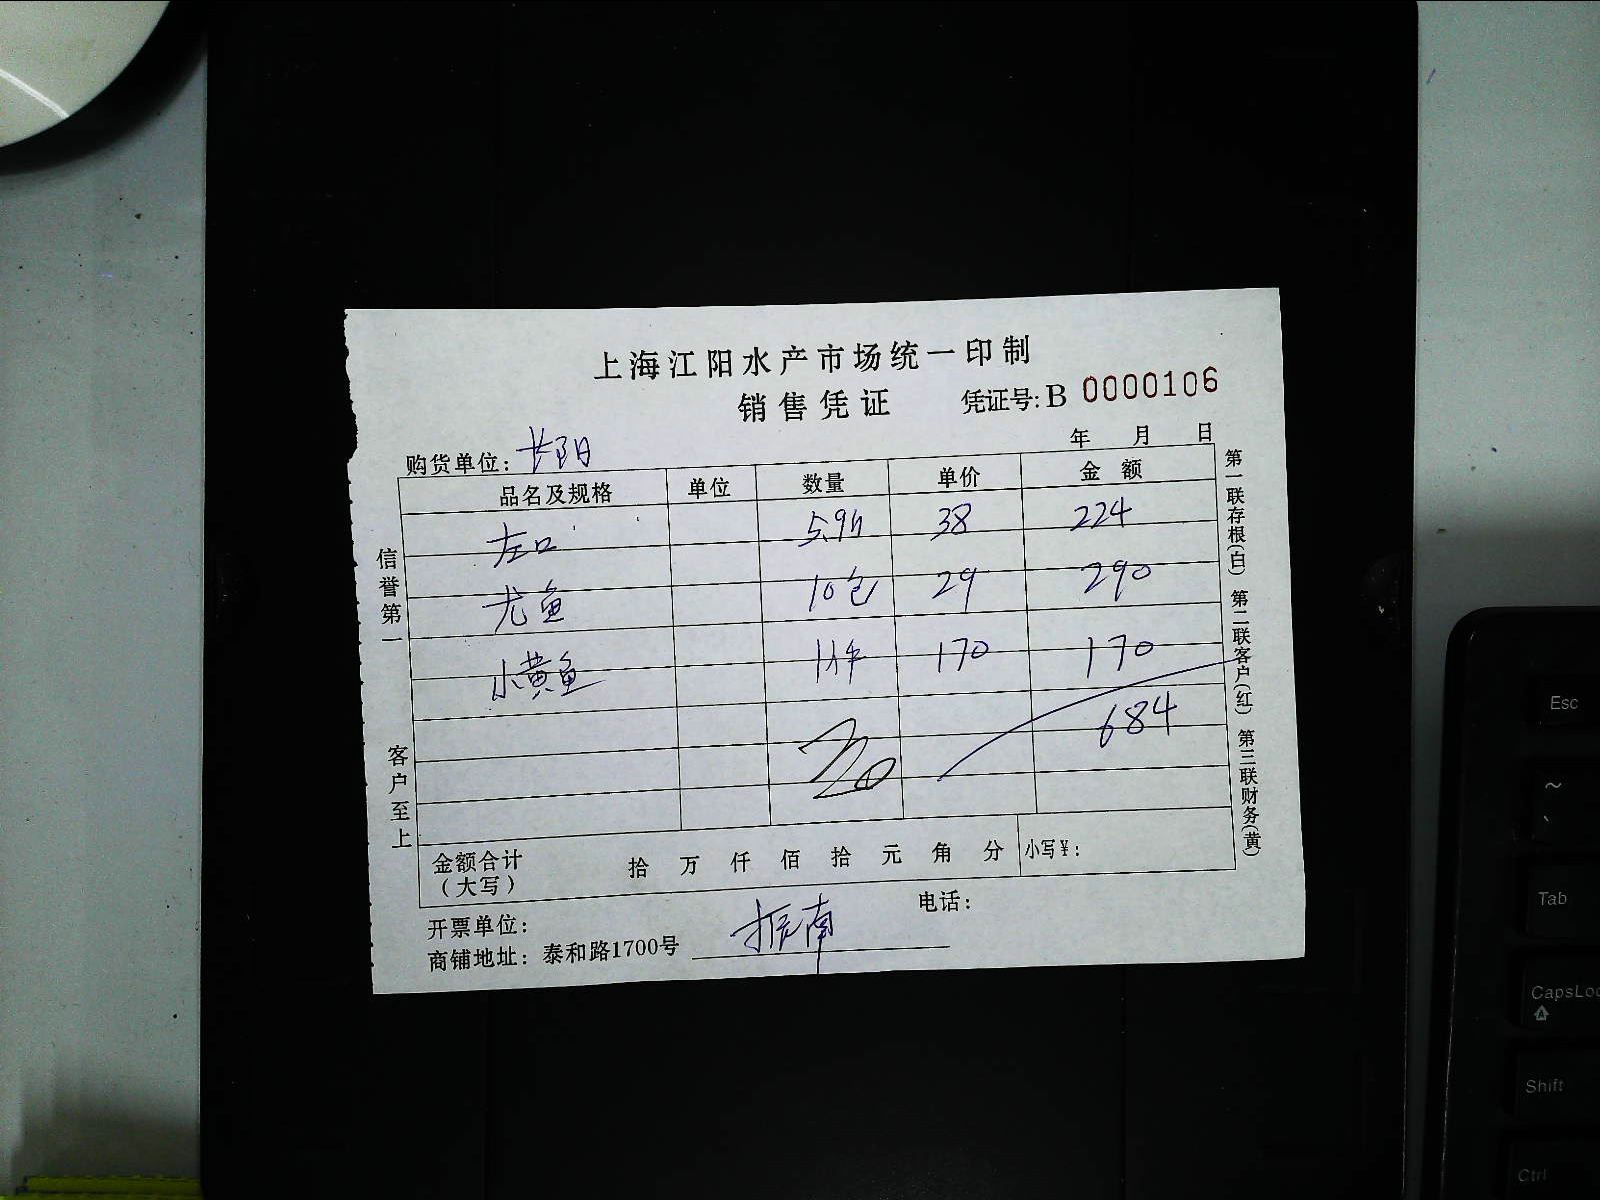 上海江阳水产市场统一印制
销售凭证 凭证号:B 0000106
购货单位: 长阳 年 月 日
品名及规格 单位 数量 单价 金额
左口 5.9斤 38 224
尤鱼 10包 29 290
小黄鱼 1件 170 170
684
金额合计(大写) 拾 万 仟 佰 拾 元 角 分 小写¥:
开票单位: 振南 电话:
商铺地址: 泰和路1700号
信誉第一 客户至上
第一联存根(白) 第二联客户(红) 第三联财务(黄)
Esc
~
Tab
CapsLoc
Shift
Ctrl